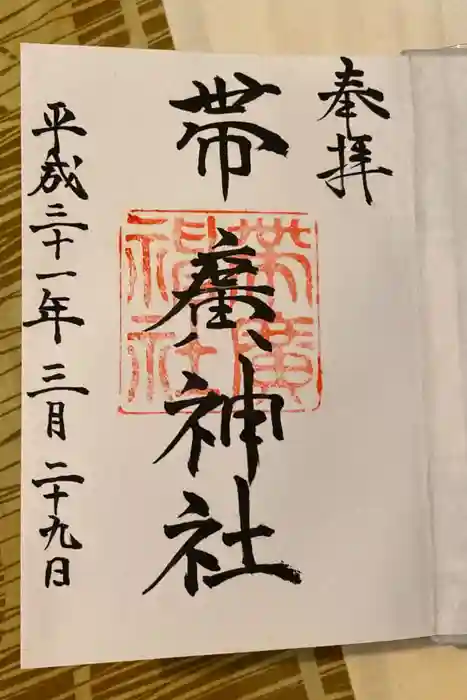 奉拝
帯廣神社
帯廣神社
平成三十一年三月二十九日